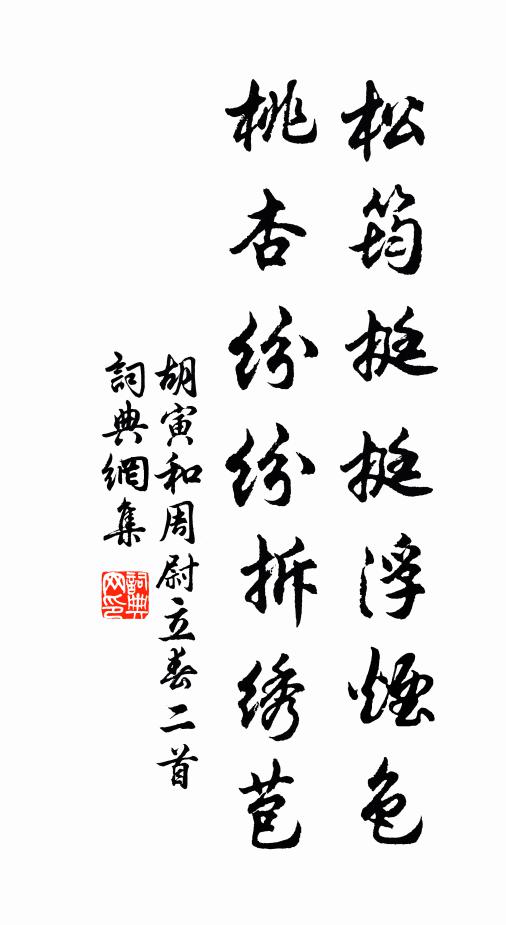 松筠挺挺浮煙色
桃杏紛紛拆绣苞
胡寅和周尉立春二首
詞典網集
詞典网印